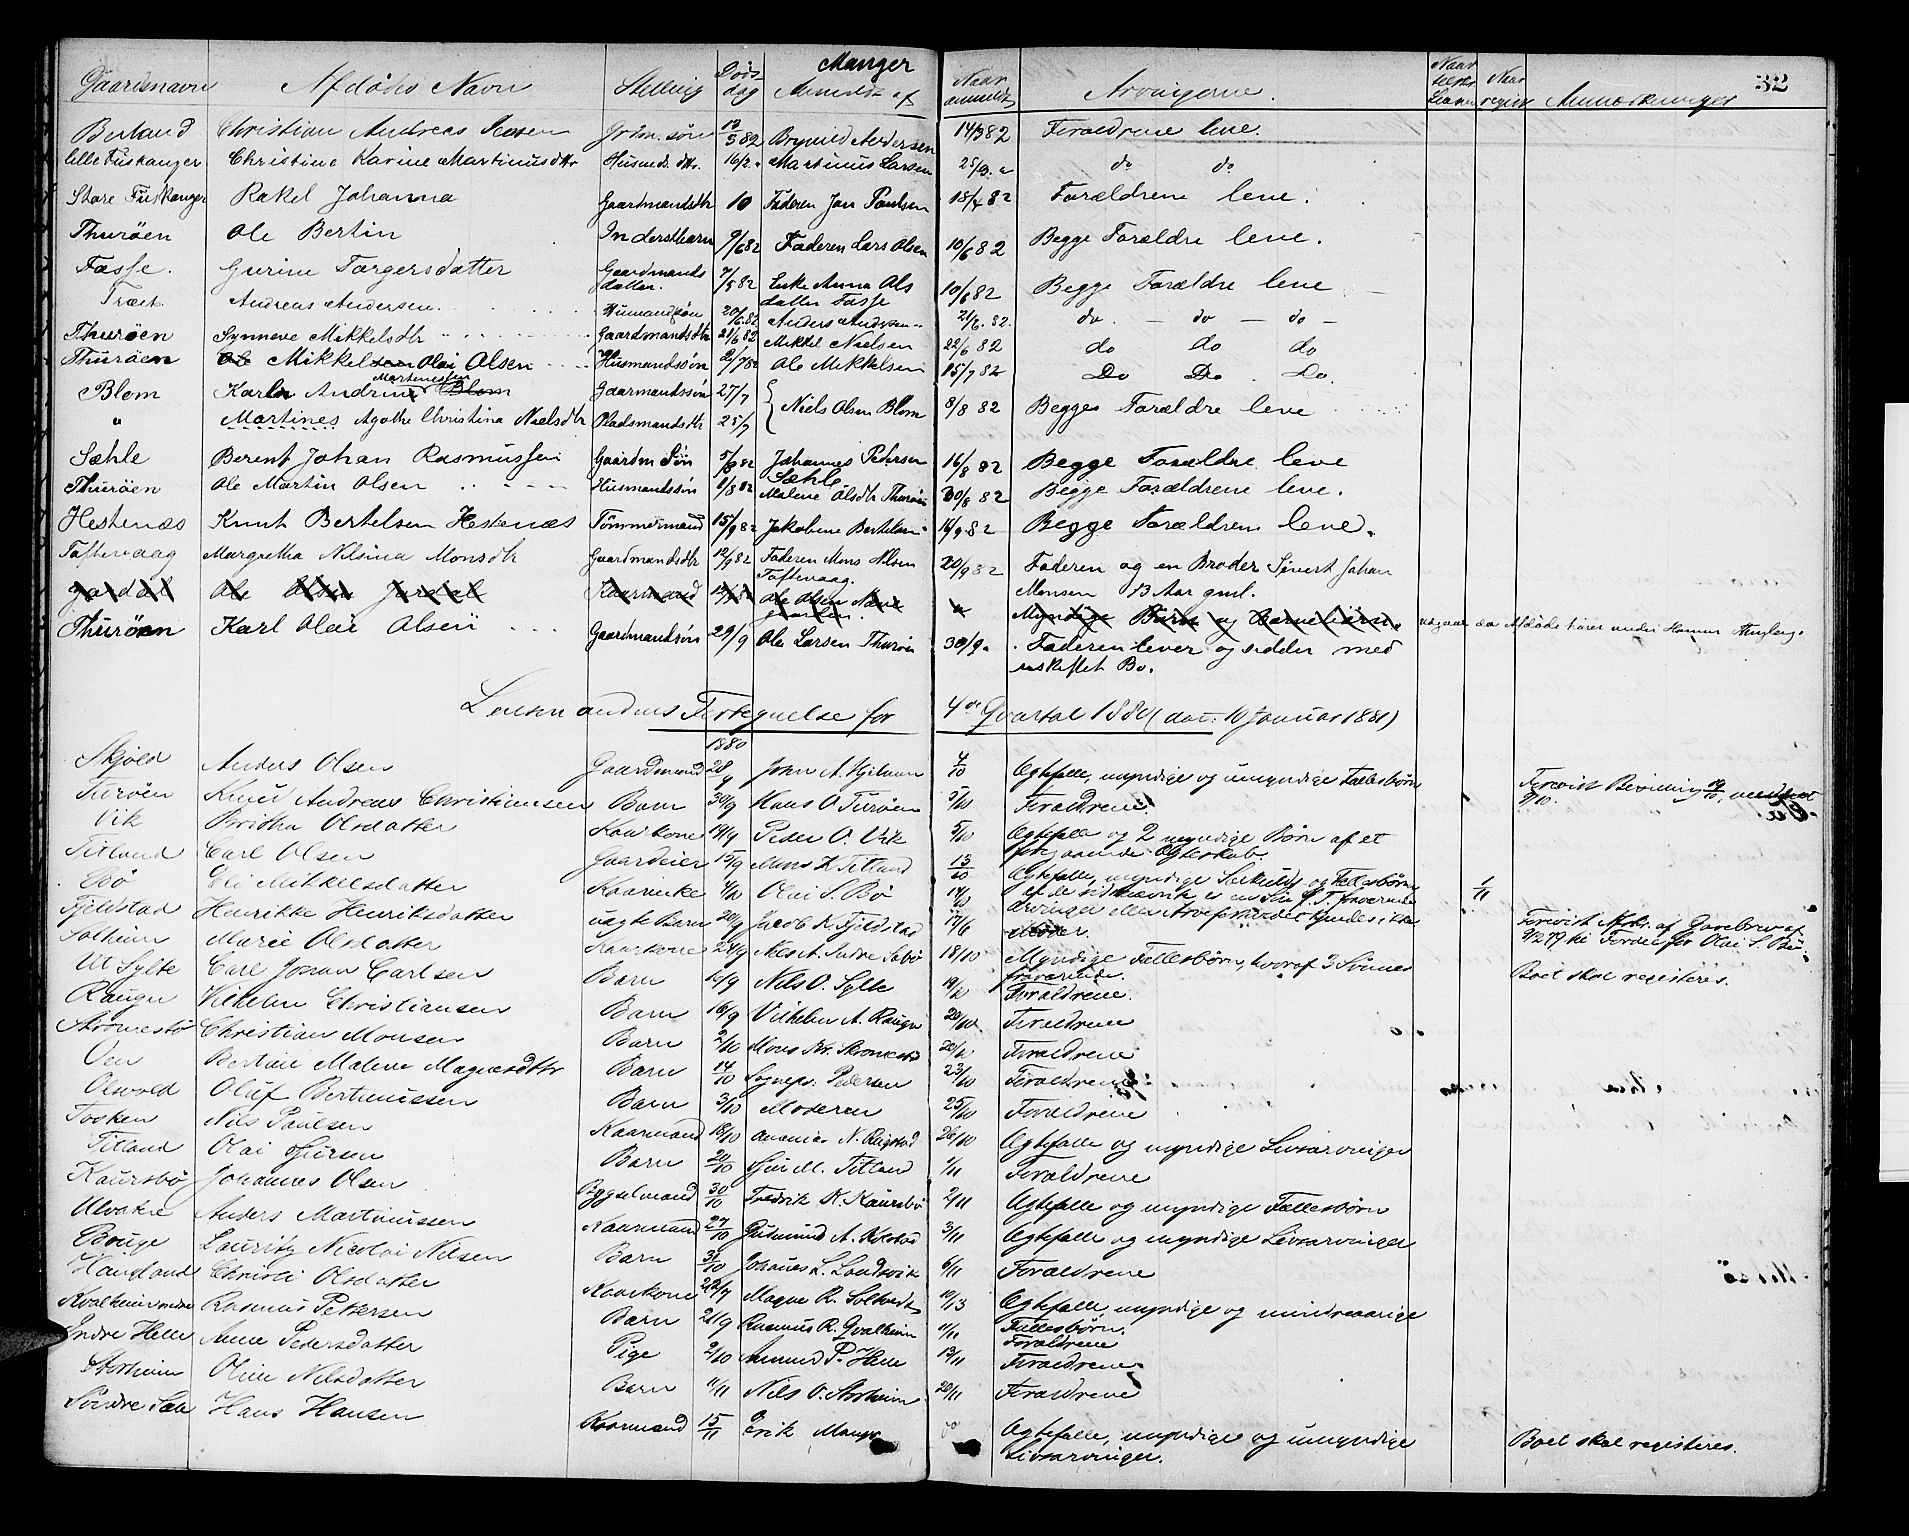 Manger
32
Gaardsnavn Afdødes Navn Stilling Dødsdag Anmeldt af Naar anmeldt Arvingerne Anmærkninger
Berland Christian Andreas 82 Brynild Andersen 14/3 82 Forældrene leve.
Lille Fuskanger Christine Karine Martinusdtr Husmds. dtr. 16/2 Martinus Larsen 25/3 do do
Store Fuskanger Rakel Johanna Gaardmandsdtr 10 Faderen Jan Paulsen 18/4 82 Forældrene leve.
Thurøen Ole Bertin Inderstbarn 9/6 82 Faderen Lars Olsen 10/6 82 Begge Forældre leve.
Fosse. Gurine Torgersdatter Gaardmands datter. 7/5 82 Enke Anna Olsdatter Fosse 10/6 82 Begge Forældre leve
Træet Andreas Andersen Husmandsøn 20/6 82 Anders Andersen 21/6 82. do. — do — do —
Thurøen Synneve Mikkelsdtr Gaardmandsdtr 21/6 82 Mikkel Nielsen 22/6 82 do do do
Thurøen Ole Mikkelsen Olai Olsen Husmandssøn 2/7 82 Ole Mikkelsen 15/7 82 Do Do Do.
Blom Karl Andrine Martinessen Blom Gaarmandssøn 27/7 Niels Olsen Blom 8/8 82 Begges Forældre leve
" Martines Agathe Christina Nielsdtr Pladsmandsdtr 25/7
Sæhle Berent Johan Rasmussen Gaardm Søn 5/8 82 Johannes Pedersen Sæhle 16/8 82 Begge Forældre leve
Thurøen Ole Martin Olsen Husmandssøn 1/8 82 Malene Olsdtr Thurøen 30/8 82 Begge Forældrene leve.
Hestenæs Knut Bertelsen Hestenæs Tømmermand 15/9 82 Jakobine Bertelsen 16/9 82 Begge Forældrene leve.
Toftevaag Margretha Nilsina Monsdtr Gaardmandsdtr 12/9 82 Faderen Mons Nilsen Toftevaag. 20/9 82 Faderen og en Broder Sivert Johan
Monsen 13 Aar gml.
Jordal Ole Olsen Jordal Kaarmand Ole Olsen " Myndige Børn og Barnebørn. udgaar da Afdøde hører under Hamre Thinglag.
Thurøen Karl Olai Olsen Gaardmandsøn 29/9 Ole Larsen Thurøen 30/9 Faderen lever og sidder med
uskiftet Bo.
Lensmandens Fortegnelse for 4de Qvartal 1880 (dat: 10 Januar 1881)
1880
Skjold Anders Olsen Gaardmand 28/9 John A. 4/10 Ægtefælle, myndige og umyndige Fællesbørn
Turøen Knud Andreas Christiansen Barn 30/9 Hans O. Turøen 5/10 Forældrene.
Vik Britha Olsdatter Kaarkone 19/9 Peder O. Vik 5/10 Ægtefælle og 2 myndige Børn af et
foregaaende Ægteskab.
Titland Carl Olsen Gaardeier 15/9 Mons K Titland 13/10 Ægtefælle, myndige Særkuld og Fællesbørn
Bø Eli Mikkelsdatter Kaarenke Olai S. Bø 14/10
Fjeldstad Henrikke Henriksdatter uægte Barn 20/9 Jacob K Fjeldstad
Moder.
Solheim Marie Olsdatter Kaarkone 24/9 Nils A. Indre Sæbø 18/10 Myndige Fællesbørn, hvoraf 3 Sønner
fraværende. Boet skal registeres.
Ut Sylte Carl Johan Carlsen Barn Nils O. Sylte Forældrene.
Raugn Vilhelm Christiansen Barn 16/9 Vilhelm A. Raugn 20/10 Forældrene
Strømesbø Christian Monsen Barn 2/10 Mons Forældrene
Oen Bertine Malene Magnesdtr Barn 14/10 Sognepr. Pedersen 23/10 Forældrene
Olsvold Oluf Bertinussen Barn 3/10 Moderen 25/10 Forældrene
Tosken Nils Paulsen Kaarmand 18/10 Ananias N. 26/10 Ægtefælle og myndige Livsarvinger
Titland Olai Sjursen Barn 20/10 Sjur M. Titland 1/11 Forældrene
Kaursbø Johannes Olsen Byggselmand 30/10 Fredrik K. Kaursbø 2/11 Ægtefælle og myndige Fællesbørn
Ulvatne Anders Martinussen Kaarmand 27/10 Gudmund A. 3/11 Ægtefælle og myndige Livsarvinger
Bouge Lauritz Nicolai Nilsen Barn 31/10 Johannes L. Landsvik 6/11 Forældrene
Haugland Christi Olsdatter Kaarkone Magne R. Soltvedt Ægtefælle, myndige og mindreaarige
Fællesbørn.
Kvalheim nedre Rasmus Pettersen Barn 21/9 Rasmus R. Qvalheim 11/11 Forældrene
Indre Helle Anne Pedersdatter Pige 2/10 Amund P. Helle 13/11 Forældrene
Storheim Oline Nilsdatter Barn 11/11 Nils O. Storheim 20/11 Forældrene
Søndre Sæle Hans Hansen Kaarmand 15/11 Erik Manger do Ægtefælle, myndige og umyndige
Livsarvinger. Boet skal registeres.